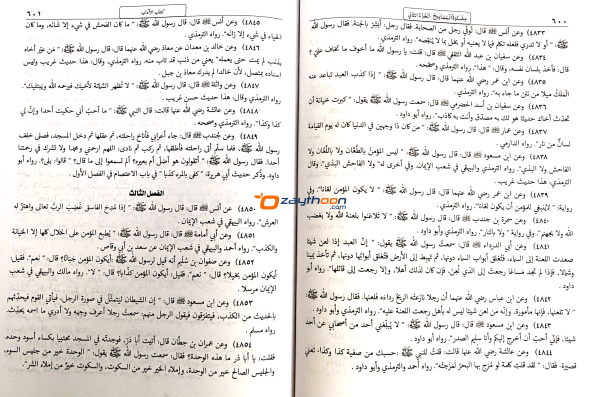 ٦٠٠ مشكاة المصابيح: الجزء الثاني
٤٨٣٣) وعن أنس ﷺ قال: توفي رجل من الصحابة. فقال رجل: أبشر بالجنة. فقال رسول الله
ﷺ: " أو لا تدري فلعله تكلم فيما لا يعنيه أو بخل بما لا ينقصه". رواه الترمذي.
٤٨٣٤) وعن سفيان بن عبد الله الثقفي قال: قلت: يا رسول الله ما أخوف ما تخاف علي؟
قال: فأخذ بلسان نفسه، وقال: " هذا". رواه الترمذي وصححه.
٤٨٣٥) وعن ابن عمر رضي الله عنهما قال: قال رسول الله ﷺ: " إذا كذب العبد تباعد عنه
الملك ميلا من نتن ما جاء به". رواه الترمذي.
٤٨٣٦) وعن سفيان بن أسد الحضرمي قال: سمعت رسول الله ﷺ يقول: " كبرت خيانة أن
تحدث أخاك حديثا هو لك به مصدق وأنت به كاذب". رواه أبو داود.
٤٨٣٧) وعن عمار قال: قال رسول الله ﷺ: " من كان ذا وجهين في الدنيا كان له يوم القيامة
لسان من نار". رواه الدارمي.
٤٨٣٨) وعن ابن مسعود قال: قال رسول الله ﷺ: " ليس المؤمن بالطعان ولا باللعان ولا
الفاحش ولا البذي". رواه الترمذي والبيهقي في شعب الإيمان. وفي أخرى له " ولا الفاحش البذي". وقال
الترمذي: هذا حديث غريب.
٤٨٣٩) وعن ابن عمر رضي الله عنهما قال: قال رسول الله ﷺ: " لا يكون المؤمن لعانا". وفي
رواية: " لا ينبغي للمؤمن أن يكون لعانا". رواه الترمذي.
٤٨٤٠) وعن سمرة بن جندب قال: قال رسول الله ﷺ: " لا تلاعنوا بلعنة الله ولا بغضب
الله ولا بجهنم". وفي رواية " ولا بالنار". رواه الترمذي وأبو داود.
٤٨٤١) وعن أبي الدرداء قال: سمعت رسول الله ﷺ يقول: " إن العبد إذا لعن شيئا
صعدت اللعنة إلى السماء، فتغلق أبواب السماء دونها، ثم تهبط إلى الأرض فتغلق أبوابها دونها، ثم تأخذ يمينا
وشمالا، فإذا لم تجد مساغا رجعت إلى الذي لعن، فإن كان لذلك أهلا، وإلا رجعت إلى قائلها". رواه أبو
داود.
٤٨٤٢) وعن ابن عباس رضي الله عنهما أن رجلا نازعته الريح رداءه فلعنها. فقال رسول الله ﷺ:
" لا تلعنها، فإنها مأمورة، وإنه من لعن شيئا ليس له بأهل رجعت اللعنة عليه". رواه الترمذي وأبو داود.
٤٨٤٣) وعن ابن مسعود قال: قال رسول الله ﷺ: " لا يبلغني أحد من أصحابي عن أحد
شيئا، فإني أحب أن أخرج إليكم وأنا سليم الصدر". رواه أبو داود.
٤٨٤٤) وعن عائشة رضي الله عنها قالت: قلت للنبي ﷺ: حسبك من صفية كذا وكذا، تعني
قصيرة. فقال: " لقد قلت كلمة لو مزج بها البحر لمزجته". رواه أحمد والترمذي وأبو داود.
كتاب الآداب ٦٠١
٤٨٤٥) وعن أنس قال: قال رسول الله ﷺ: " ما كان الفحش في شيء إلا شانه، وما كان
الحياء في شيء إلا زانه". رواه الترمذي.
٤٨٤٦) وعن خالد بن معدان عن معاذ رضي الله عنهما قال: قال رسول الله ﷺ: " من عير أخاه
بذنب لم يمت حتى يعمله" يعني من ذنب قد تاب منه. رواه الترمذي، وقال: هذا حديث غريب وليس
إسناده بمتصل، لأن خالدا لم يدرك معاذ بن جبل.
٤٨٤٧) وعن واثلة قال: قال رسول الله ﷺ: " لا تظهر الشماتة لأخيك فيرحمه الله ويبتليك".
رواه الترمذي، وقال: هذا حديث حسن غريب.
٤٨٤٨) وعن عائشة رضي الله عنها قالت: قال النبي ﷺ: " ما أحب أني حكيت أحدا وإن لي
كذا وكذا". رواه الترمذي وصححه.
٤٨٤٩) وعن جندب قال: جاء أعرابي فأناخ راحلته، ثم عقلها ثم دخل المسجد، فصلى خلف
رسول الله ﷺ، فلما سلم أتى راحلته فأطلقها، ثم ركب ثم نادى: اللهم ارحمني ومحمدا ولا تشرك في رحمتنا
أحدا. فقال رسول الله ﷺ: " أتقولون هو أضل أم بعيره؟ ألم تسمعوا إلى ما قال؟" قالوا: بلى؟. رواه أبو
داود. وذكر حديث أبي هريرة: " كفى بالمرء كذبا" في باب الاعتصام في الفصل الأول.
الفصل الثالث
٤٨٥٠) عن أنس قال: قال رسول الله ﷺ: " إذا مدح الفاسق غضب الرب تعالى واهتز له
العرش". رواه البيهقي في شعب الإيمان.
٤٨٥١) وعن أبي أمامة قال: قال رسول الله ﷺ: " يطبع المؤمن على الخلال كلها إلا الخيانة
والكذب". رواه أحمد والبيهقي في شعب الإيمان عن سعد بن أبي وقاص.
٤٨٥٢) وعن صفوان بن سليم أنه قيل لرسول الله ﷺ: أيكون المؤمن جبانا؟ قال: " نعم". فقيل:
أيكون المؤمن بخيلا؟ قال: " نعم". فقيل: أيكون المؤمن كذابا؟ قال: " لا". رواه مالك والبيهقي في شعب
الإيمان مرسلا.
٤٨٥٣) وعن ابن مسعود قال: إن الشيطان ليتمثل في صورة الرجل، فيأتي القوم فيحدثهم
بالحديث من الكذب، فيتفرقون فيقول الرجل منهم: سمعت رجلا أعرف وجهه ولا أدري ما اسمه يحدث.
رواه مسلم.
٤٨٥٤) وعن عمران بن حطان قال: أتيت أبا ذر، فوجدته في المسجد محتبيا بكساء أسود وحده.
فقلت: يا أبا ذر ما هذه الوحدة؟ فقال: سمعت رسول الله ﷺ يقول: " الوحدة خير من جليس السوء،
والجليس الصالح خير من الوحدة، وإملاء الخير خير من السكوت، والسكوت خير من إملاء الشر".
Ozaythoon
.com